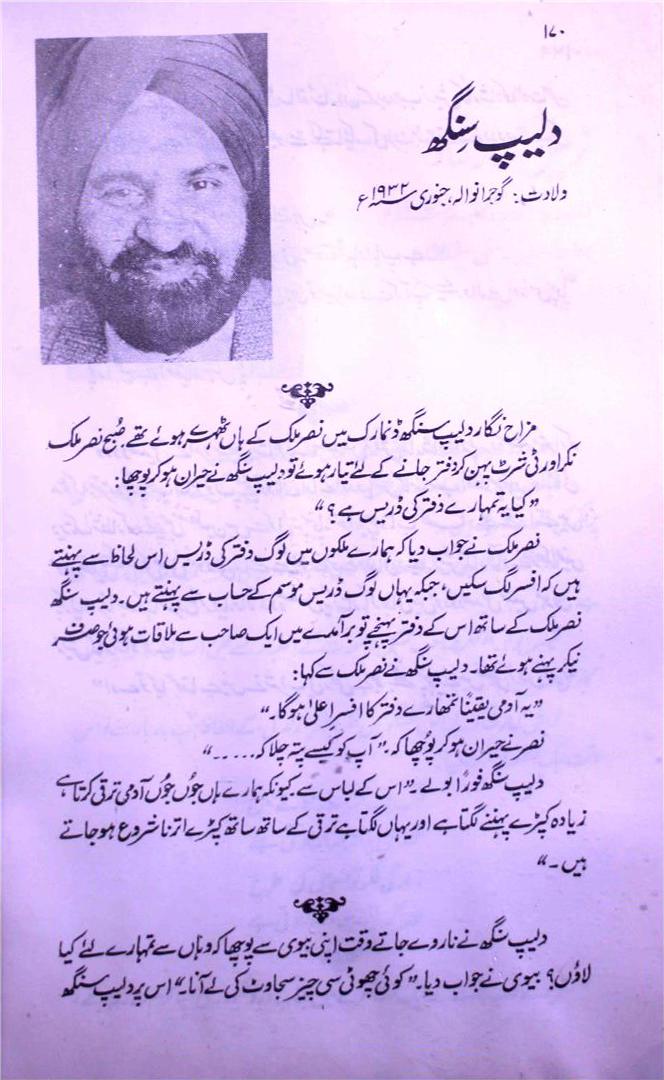 ۱۷۰
دلیپ سنگھ
ولادت: گوجرانوالہ، جنوری ۱۹۳۲ء
مزاح نگار دلیپ سنگھ ڈنمارک میں نصر ملک کے ہاں ٹھہرے ہوئے تھے۔ صُبح نصر ملک
نکر اور ٹی شرٹ پہن کر دفتر جانے کے لئے تیار ہوئے تو دلیپ سنگھ نے حیران ہو کر پوچھا:
”کیا یہ تمہارے دفتر کی ڈریس ہے؟“
نصر ملک نے جواب دیا کہ ہمارے ملکوں میں لوگ دفتر کی ڈریس اس لحاظ سے پہنتے
ہیں کہ افسر لگ سکیں، جبکہ یہاں لوگ ڈریس موسم کے حساب سے پہنتے ہیں۔ دلیپ سنگھ
نصر ملک کے ساتھ اس کے دفتر پہنچے تو برآمدے میں ایک صاحب سے ملاقات ہوئی جو صرف
نیکر پہنے ہوئے تھا۔ دلیپ سنگھ نے نصر ملک سے کہا:
”یہ آدمی یقیناً تمھارے دفتر کا افسرِ اعلیٰ ہوگا۔“
نصر نے حیران ہو کر پُوچھا کہ۔ ”آپ کو کیسے پتہ چلا کہ.....“
دلیپ سنگھ فوراً بولے۔ ”اس کے لباس سے۔ کیونکہ ہمارے ہاں جُوں جُوں آدمی ترقی کرتا ہے
زیادہ کپڑے پہننے لگتا ہے اور یہاں لگتا ہے ترقی کے ساتھ ساتھ کپڑے اترنا شروع ہو جاتے
ہیں۔“
دلیپ سنگھ نے ناروے جاتے وقت اپنی بیوی سے پوچھا کہ وہاں سے تمہارے لئے کیا
لاؤں؟ بیوی نے جواب دیا۔ ”کوئی چھوٹی سی چیز سجاوٹ کی لے آنا۔“ اس پر دلیپ سنگھ